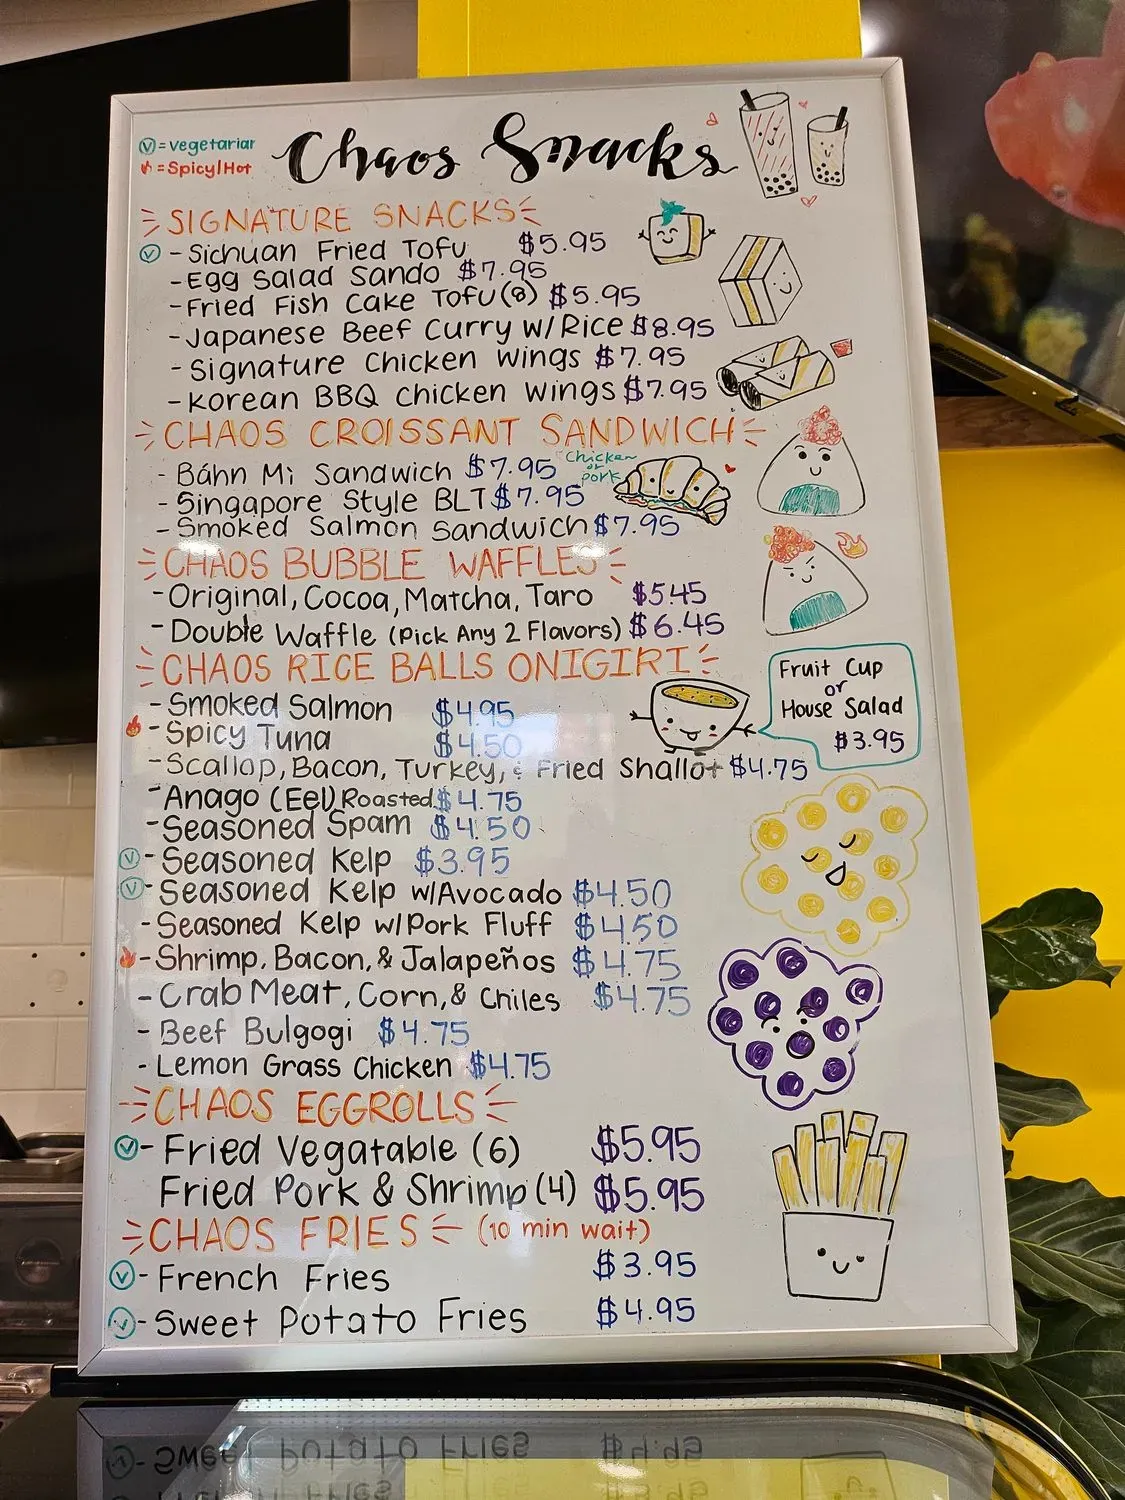 Ⓥ = vegetarian
= Spicy/Hot
Chaos Snacks
SIGNATURE SNACKS
Ⓥ - Sichuan Fried Tofu $5.95
- Egg Salad Sando $7.95
- Fried Fish Cake Tofu (8) $5.95
- Japanese Beef Curry w/Rice $8.95
- Signature Chicken Wings $7.95
- Korean BBQ Chicken Wings $7.95
CHAOS CROISSANT SANDWICH
- Báhn Mi Sandwich $7.95 Chicken or pork
- Singapore Style BLT $7.95
- Smoked Salmon Sandwich $7.95
CHAOS BUBBLE WAFFLES
- Original, Cocoa, Matcha, Taro $5.45
- Double Waffle (Pick Any 2 Flavors) $6.45
CHAOS RICE BALLS ONIGIRI
- Smoked Salmon $4.95
- Spicy Tuna $4.50
- Scallop, Bacon, Turkey, & Fried Shallot $4.75
- Anago (Eel) Roasted $4.75
- Seasoned Spam $4.50
Ⓥ - Seasoned Kelp $3.95
Ⓥ - Seasoned Kelp w/Avocado $4.50
- Seasoned Kelp w/Pork Fluff $4.50
- Shrimp, Bacon, & Jalapeños $4.75
- Crab Meat, Corn, & Chiles $4.75
- Beef Bulgogi $4.75
- Lemon Grass Chicken $4.75
Fruit Cup
or
House Salad
$3.95
CHAOS EGGROLLS
Ⓥ - Fried Vegatable (6) $5.95
Fried Pork & Shrimp (4) $5.95
CHAOS FRIES (10 min wait)
Ⓥ - French Fries $3.95
Ⓥ - Sweet Potato Fries $4.95